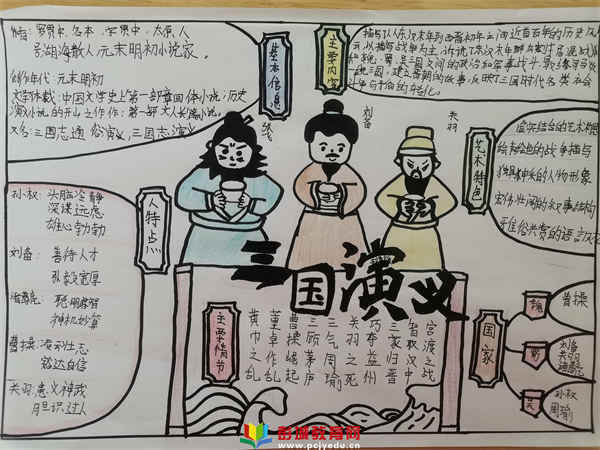 作者:罗贯中,名本,字贯中,太原人
号湖海散人元末明初小说家。
创作年代:元末明初
文学体裁:中国文学史上第一部章回体小说;历史
演义小说的开山之作;第一部文人长篇小说。
又名:三国志通俗演义,三国志演义
基本信息
主要内容
描写了从东汉末年到西晋初年之间近百年的历史风
云,以描写战争为主,诉说了东汉末年群雄割据混战
和魏、蜀、吴三国之间的政治和军事斗争,最终司马炎
一统三国,建立晋朝的故事,反映了三国时代各类社会
斗争与矛盾的转化。
张飞
刘备
关羽
艺术特色
虚实结合的艺术构思
绘声绘色的战争描写
独具神采的人物形象
宏伟壮阔的叙事结构
雅俗共赏的语言风格
人特点
孙权:头脑冷静
深谋远虑
雄心勃勃
刘备:善待人才
弘毅宽厚
诸葛亮:聪明睿智
神机妙算
曹操:凌云壮志
豁达自信
关羽:忠义神武
胆识过人
三国演义
主要情节
黄巾之乱
董卓作乱
曹操崛起
三顾茅庐
三气周瑜
关羽之死
巧夺益州
三家归晋
智取汉中
官渡之战
国家
魏
曹操
蜀
刘备
关羽
诸葛亮
吴
孙权
周瑜
彭城教育网
www.pcjyedu.cn